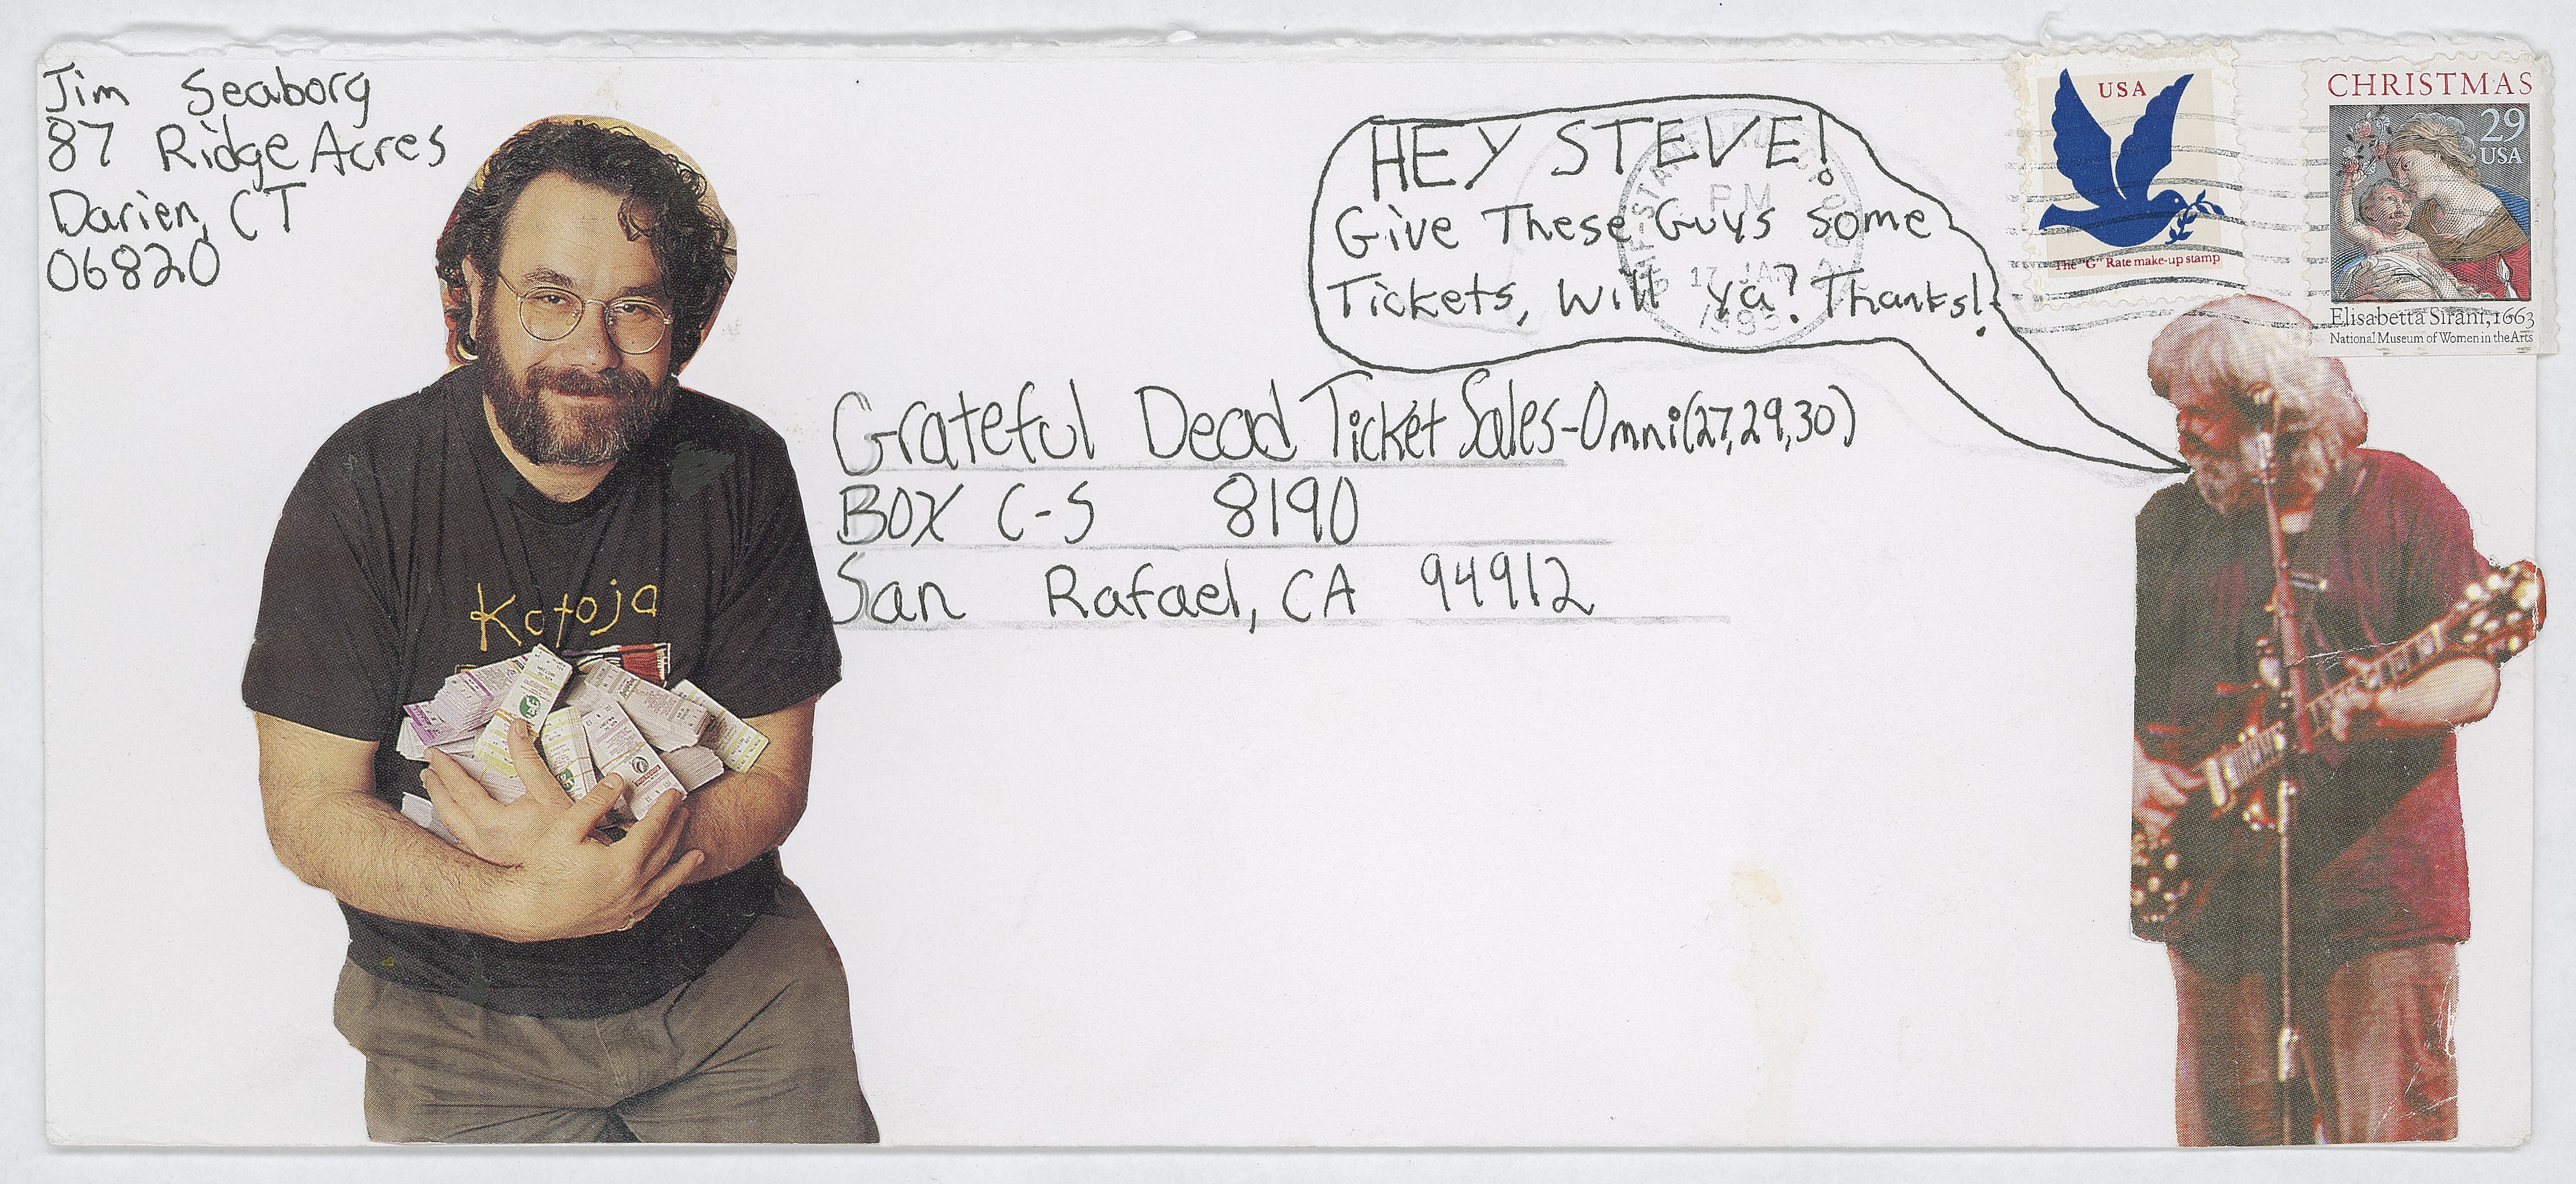 Jim Seaborg
87 Ridge Acres
Darien, CT
06820
HEY STEVE!
Give These Guys some
Tickets, Will ya? Thanks!
PM
17 JAN
USA
The "G" Rate make-up stamp
CHRISTMAS
29
USA
Elisabetta Sirani, 1663
National Museum of Women in the Arts
Grateful Dead Ticket Sales-Omni(27,29,30)
BOX C-S 8190
San Rafael, CA 94912
Kotoja